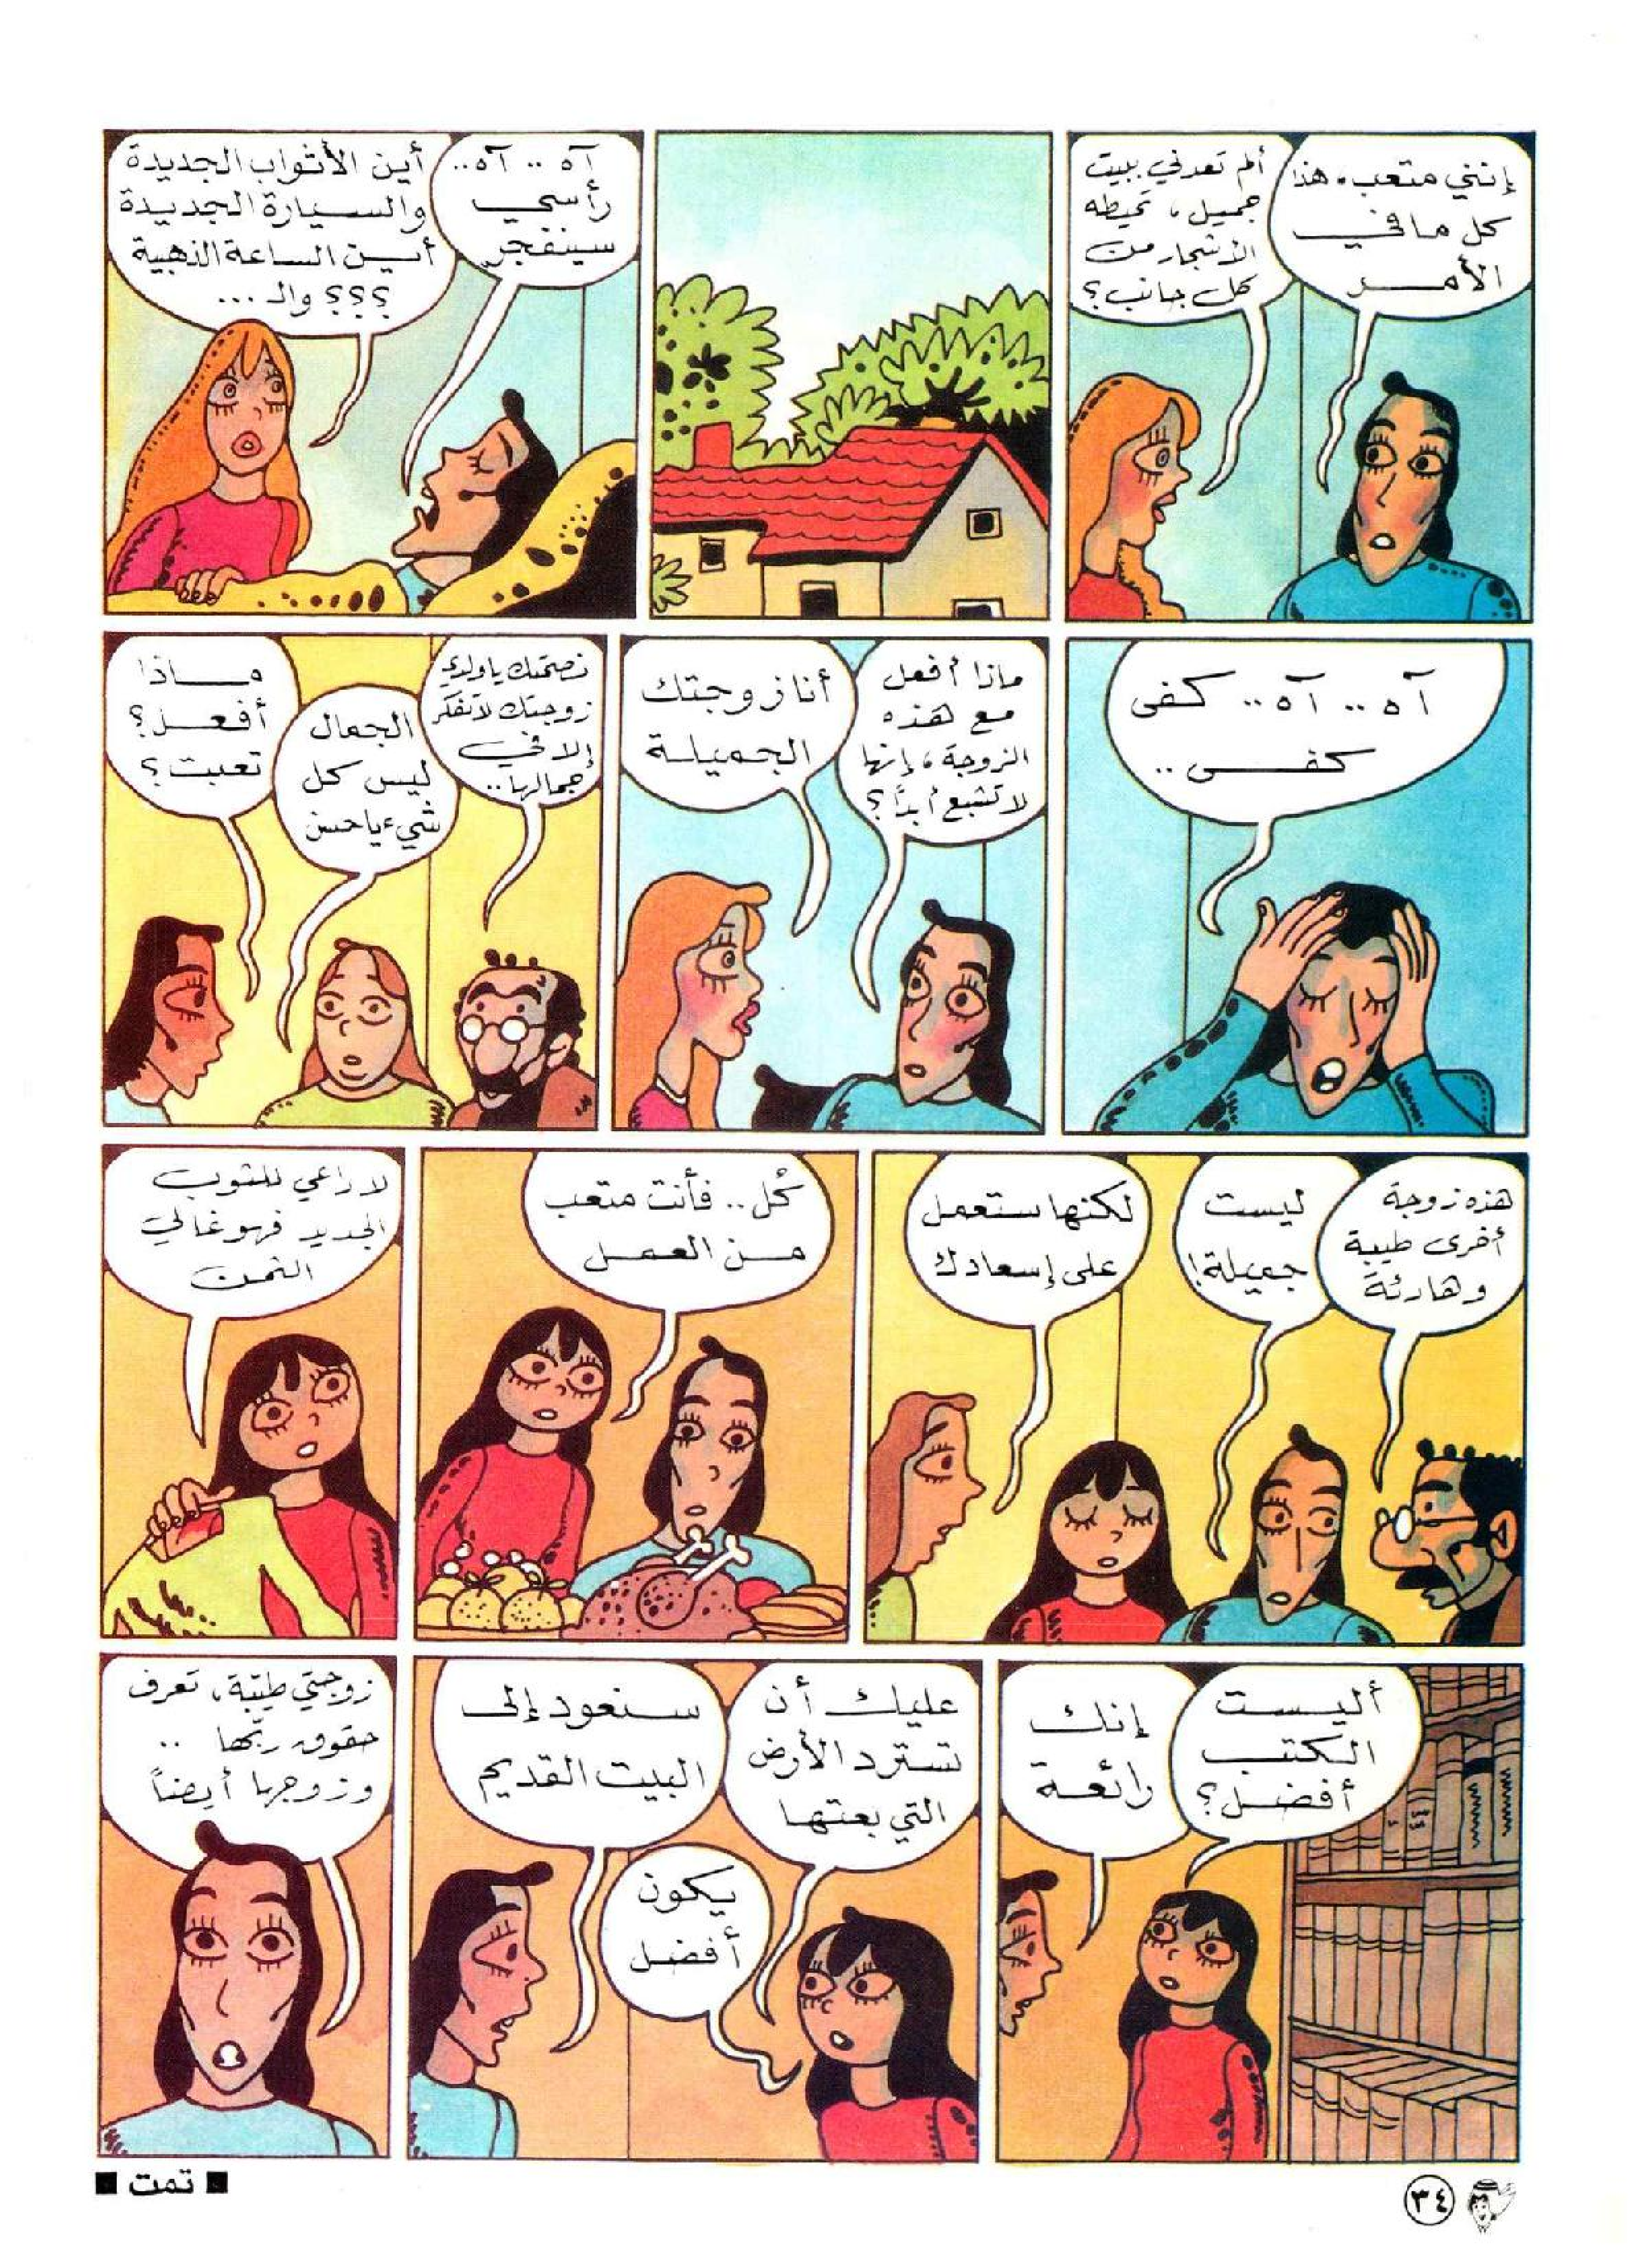 إنني متعب، هذا
كل ما في
الأمر
ألم تعدني ببيت
جميل، تحيطه
الأشجار من
كل جانب؟
آه .. آه..
رأسي
سينفجر
أين الأثواب الجديدة
والسيارة الجديدة
أين الساعة الذهبية
؟؟؟ والـ ...
آه .. آه .. كفى
كفى ..
ماذا أفعل
مع هذه
الزوجة، إنها
لا تشبع أبدًا؟
أنا زوجتك
الجميلة
نصحتك يا ولدي
زوجتك لا تفكر
إلا في
جمالها..
الجمال
ليس كل
شيء يا حسن
ماذا
أفعل؟
تعبت؟
هذه زوجة
أخرى طيبة
وهادئة
ليست
جميلة!
لكنها ستعمل
على إسعادك
كُل .. فأنت متعب
من العمل
لا داعي للثوب
الجديد فهو غالي
الثمن
أليست
الكتب
أفضل؟
إنك
رائعة
عليك أن
تسترد الأرض
التي بعتها
سنعود إلى
البيت القديم
يكون
أفضل
زوجتي طيّبة، تعرف
حقوق ربّها ..
وزوجها أيضاً
■ تمت ■
٣٤